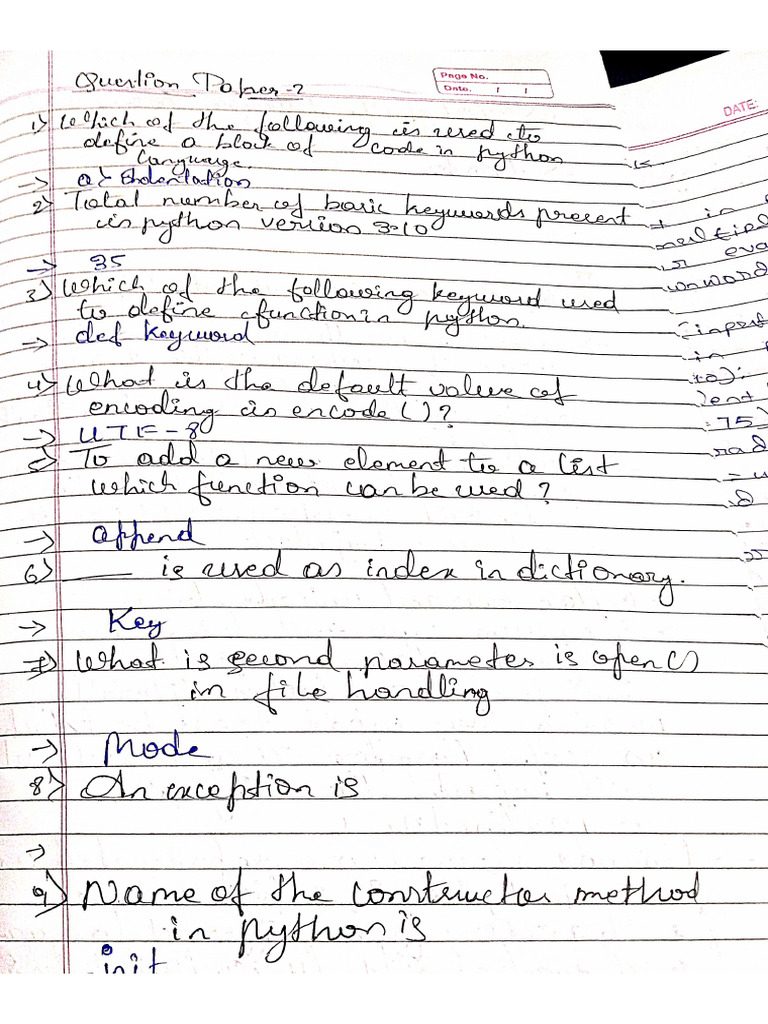 Question Paper-2
Page No.
Date. / /
DATE:
1) Which of the following is used to
define a block of code in python
language
-> a) Indentation
2) Total number of basic keywords present
in python version 3.10
-> 35
3) Which of the following keyword used
to define function in python.
-> def keyword
4) What is the default value of
encoding is encode()?
-> UTF-8
5) To add a new element to a list
which function can be used?
-> append
6) ____ is used as index in dictionary.
-> Key
7) What is second parameter is open()
in file handling
-> Mode
8) An exception is
->
9) Name of the constructor method
in python is
init